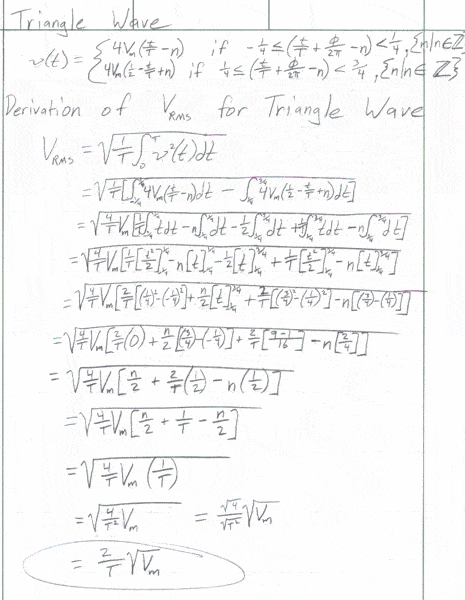 Triangle Wave
v(t) = { 4Vm(t/T - n) if -1/4 ≤ (t/T + Φ/2π - n) < 1/4, {n|n∈Z}
4Vm(1/2 - t/T + n) if 1/4 ≤ (t/T + Φ/2π - n) < 3/4, {n|n∈Z}
Derivation of V_RMS for Triangle Wave
V_RMS = √(1/T ∫₀ᵀ v²(t)dt)
= √(1/T[∫_{-1/4}^{1/4} 4Vm(t/T - n)dt - ∫_{1/4}^{3/4} 4Vm(1/2 - t/T + n)dt])
= √(4/T Vm[1/T∫_{-1/4}^{1/4} tdt - n∫_{-1/4}^{1/4} dt - 1/2∫_{1/4}^{3/4} dt + 1/T∫_{1/4}^{3/4} tdt - n∫_{1/4}^{3/4} dt])
= √(4/T Vm[1/T[t²/2]_{-1/4}^{1/4} - n[t]_{-1/4}^{1/4} - 1/2[t]_{1/4}^{3/4} + 1/T[t²/2]_{1/4}^{3/4} - n[t]_{1/4}^{3/4}])
= √(4/T Vm[2/T[(1/4)² - (-1/4)²] + n/2[t]_{-1/4}^{3/4} + 2/T[(3/4)² - (1/4)²] - n[(3/4) - (1/4)]])
= √(4/T Vm[2/T(0) + n/2[(3/4) - (-1/4)] + 2/T[(9-1)/16] - n[2/4]])
= √(4/T Vm[n/2 + 2/T(1/2) - n(1/2)])
= √(4/T Vm[n/2 + 1/T - n/2])
= √(4/T Vm(1/T))
= √(4/T² Vm) = √4/√T² √Vm
= 2/T √Vm